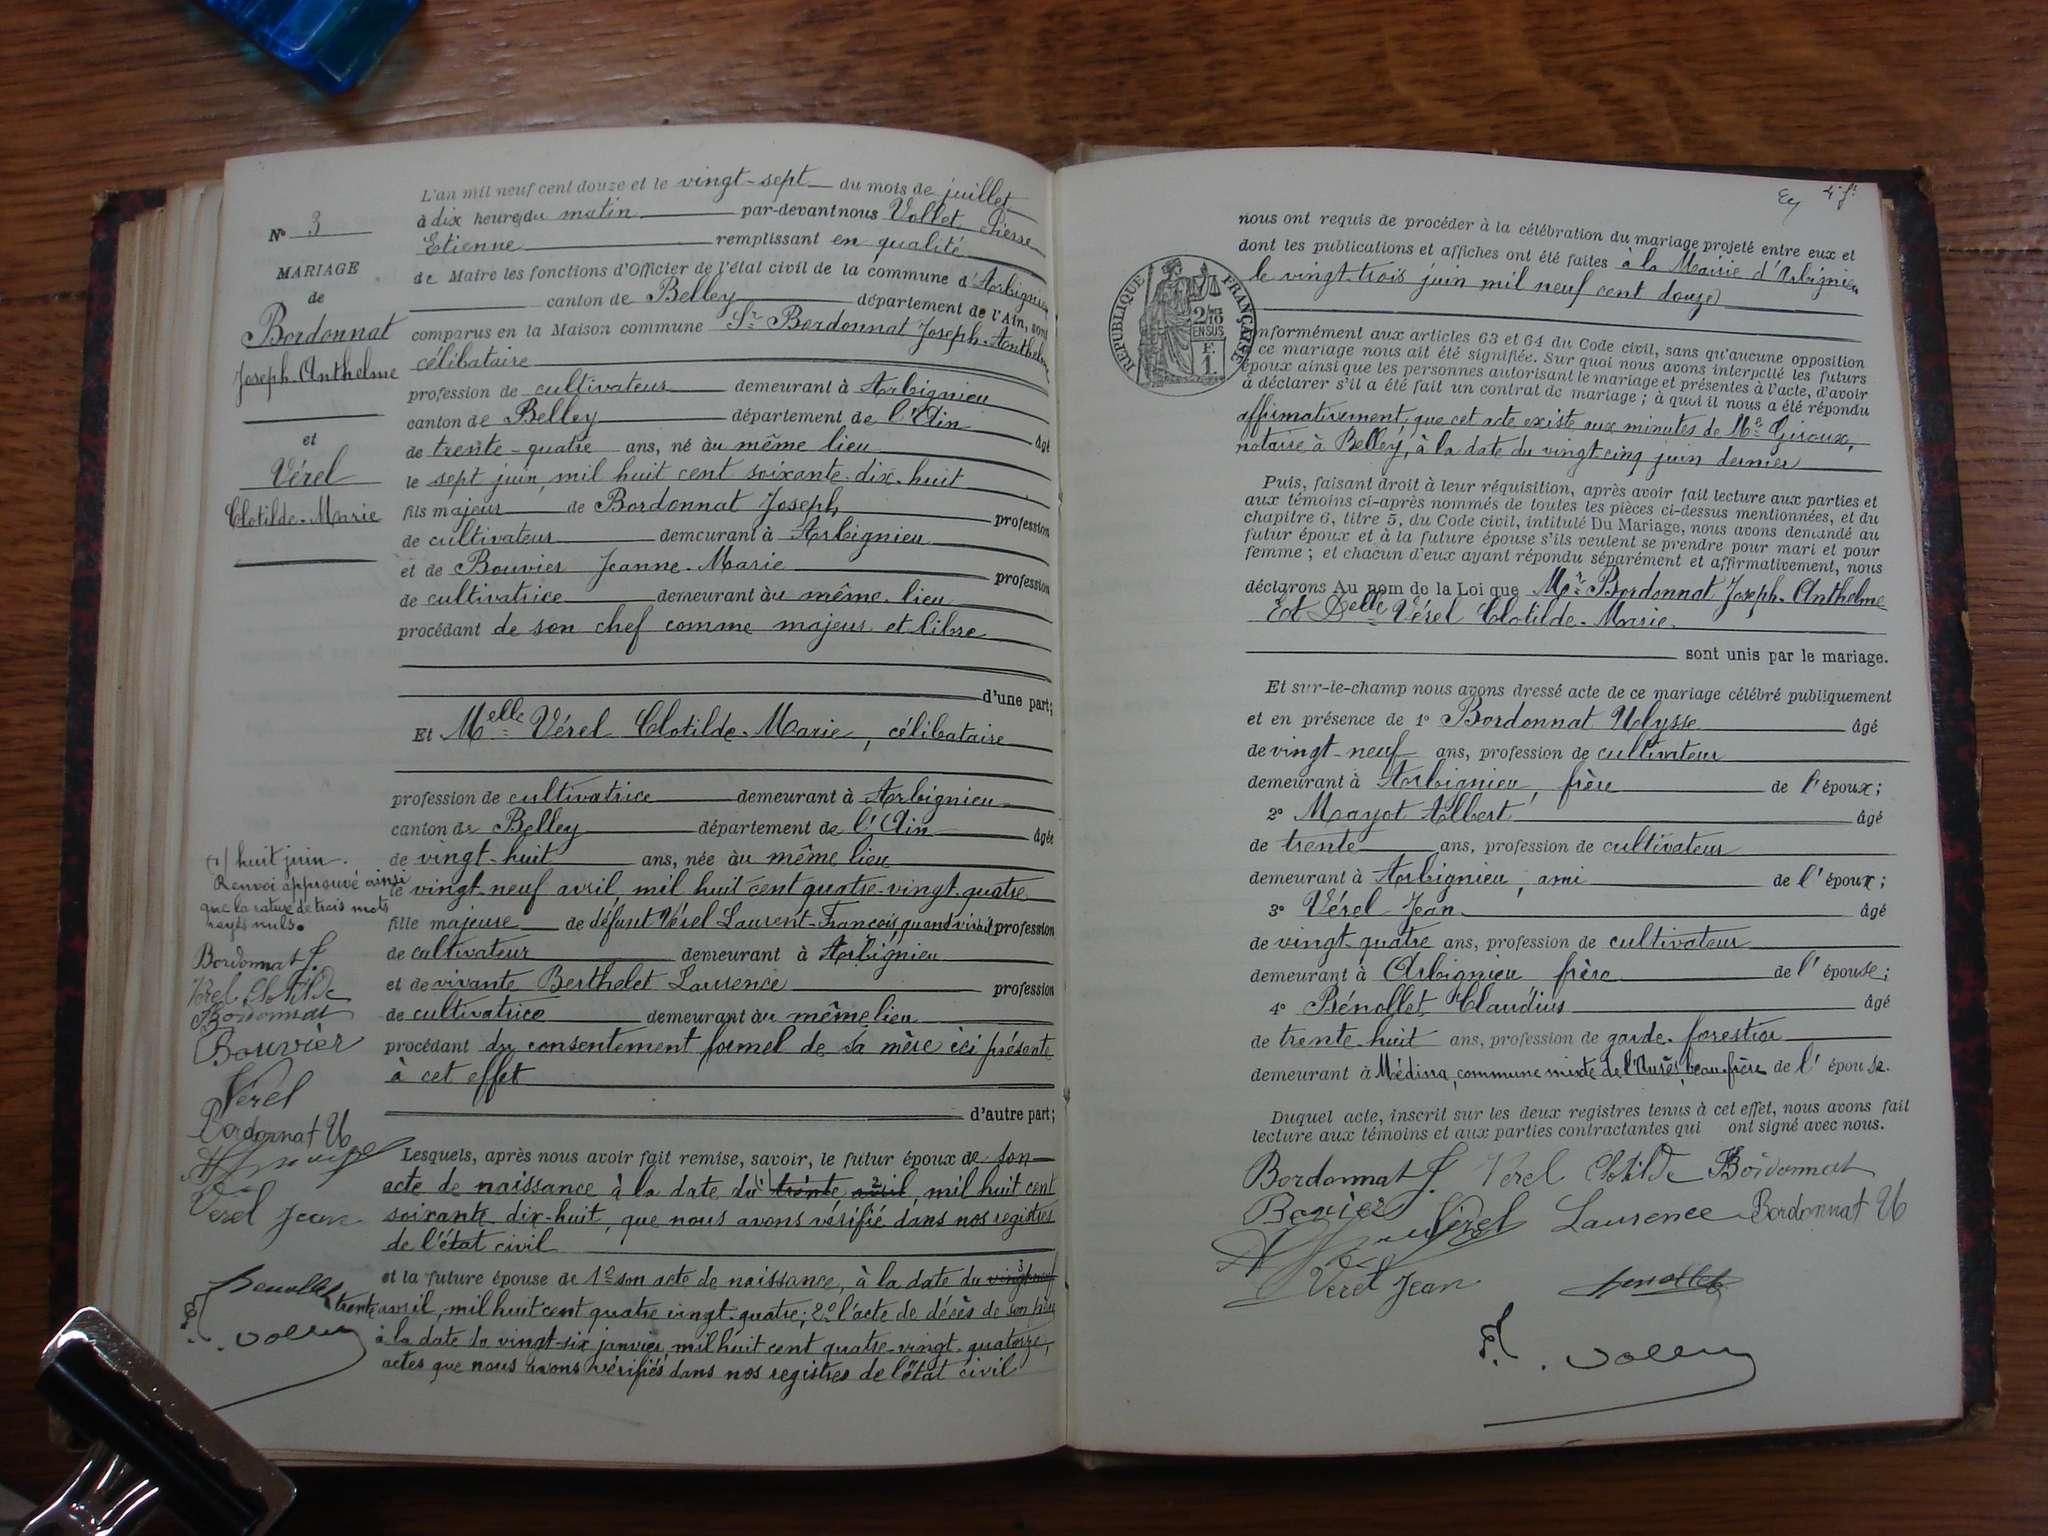 N° 3
MARIAGE
de
Bordonnat
Joseph-Anthelme
et
Vérel
Clotilde-Marie
L'an mil neuf cent douze et le vingt-sept du mois de juillet
à dix heures du matin par-devant nous Vollet Pierre
Etienne remplissant en qualité
de Maire les fonctions d'Officier de l'état civil de la commune d'Arbignieu
canton de Belley département de l'Ain, sont
comparus en la Maison commune Sr Bordonnat Joseph-Anthelme
célibataire
profession de cultivateur demeurant à Arbignieu
canton de Belley département de l'Ain âgé
de trente-quatre ans, né au même lieu
le sept juin, mil huit cent soixante-dix-huit
fils majeur de Bordonnat Joseph, profession
de cultivateur demeurant à Arbignieu
et de Bouvier Jeanne-Marie profession
de cultivatrice demeurant au même lieu
procédant de son chef comme majeur et libre
d'une part;
Et Melle Vérel Clotilde-Marie, célibataire
profession de cultivatrice demeurant à Arbignieu
canton de Belley département de l'Ain âgée
de vingt-huit ans, née au même lieu
le vingt-neuf avril mil huit cent quatre-vingt-quatre
fille majeure de défunt Vérel Laurent-François, quand vivait profession
de cultivateur demeurant à Arbignieu
et de vivante Berthelet Laurence profession
de cultivatrice demeurant au même lieu
procédant du consentement formel de sa mère ici présente
à cet effet
d'autre part;
Lesquels, après nous avoir fait remise, savoir, le futur époux de son
acte de naissance à la date du trente avril, mil huit cent
soixante dix-huit, que nous avons vérifié dans nos registres
de l'état civil
et la future épouse de 1° son acte de naissance, à la date du vingt-neuf
trente avril, mil huit cent quatre vingt-quatre; 2° l'acte de décès de son père
à la date du vingt-six janvier, mil huit cent quatre-vingt-quatorze,
actes que nous avons vérifiés dans nos registres de l'état civil
(1) huit juin.
Renvoi approuvé ainsi
que la rature de trois mots
rayés nuls.
Bordonnat J.
Vérel Clotilde
Bordonnat
Bouvier
Vérel
Bordonnat U
Vérel Jean
Benollet
Vollet
4e ft
nous ont requis de procéder à la célébration du mariage projeté entre eux et
dont les publications et affiches ont été faites à la Mairie d'Arbignieu
le vingt-trois juin mil neuf cent douze
RÉPUBLIQUE FRANÇAISE
2/10 EN SUS
F.
1.
onformément aux articles 63 et 64 du Code civil, sans qu'aucune opposition
à ce mariage nous ait été signifiée. Sur quoi nous avons interpellé les futurs
époux ainsi que les personnes autorisant le mariage et présentes à l'acte, d'avoir
à déclarer s'il a été fait un contrat de mariage; à quoi il nous a été répondu
affirmativement, que cet acte existe aux minutes de Me Giroux,
notaire à Belley, à la date du vingt cinq juin dernier
Puis, faisant droit à leur réquisition, après avoir fait lecture aux parties et
aux témoins ci-après nommés de toutes les pièces ci-dessus mentionnées, et du
chapitre 6, titre 5, du Code civil, intitulé Du Mariage, nous avons demandé au
futur époux et à la future épouse s'ils veulent se prendre pour mari et pour
femme; et chacun d'eux ayant répondu séparément et affirmativement, nous
déclarons Au nom de la Loi que Mr Bordonnat Joseph-Anthelme
Et Delle Vérel Clotilde-Marie.
sont unis par le mariage.
Et sur-le-champ nous avons dressé acte de ce mariage célébré publiquement
et en présence de 1° Bordonnat Ulysse âgé
de vingt-neuf ans, profession de cultivateur
demeurant à Arbignieu, frère de l'époux;
2° Mayot Albert âgé
de trente ans, profession de cultivateur
demeurant à Arbignieu, ami de l'époux;
3° Vérel Jean âgé
de vingt-quatre ans, profession de cultivateur
demeurant à Arbignieu frère de l'épouse;
4° Bénollet Claudius âgé
de trente-huit ans, profession de garde-forestier
demeurant à Médina, commune mixte de l'Aurès, beau-frère de l'épouse.
Duquel acte, inscrit sur les deux registres tenus à cet effet, nous avons fait
lecture aux témoins et aux parties contractantes qui ont signé avec nous.
Bordonnat J. Verel Clotilde Bordonnat
Bouvier Vérel Laurence Bordonnat U
Verel Jean Benollet
Vollet